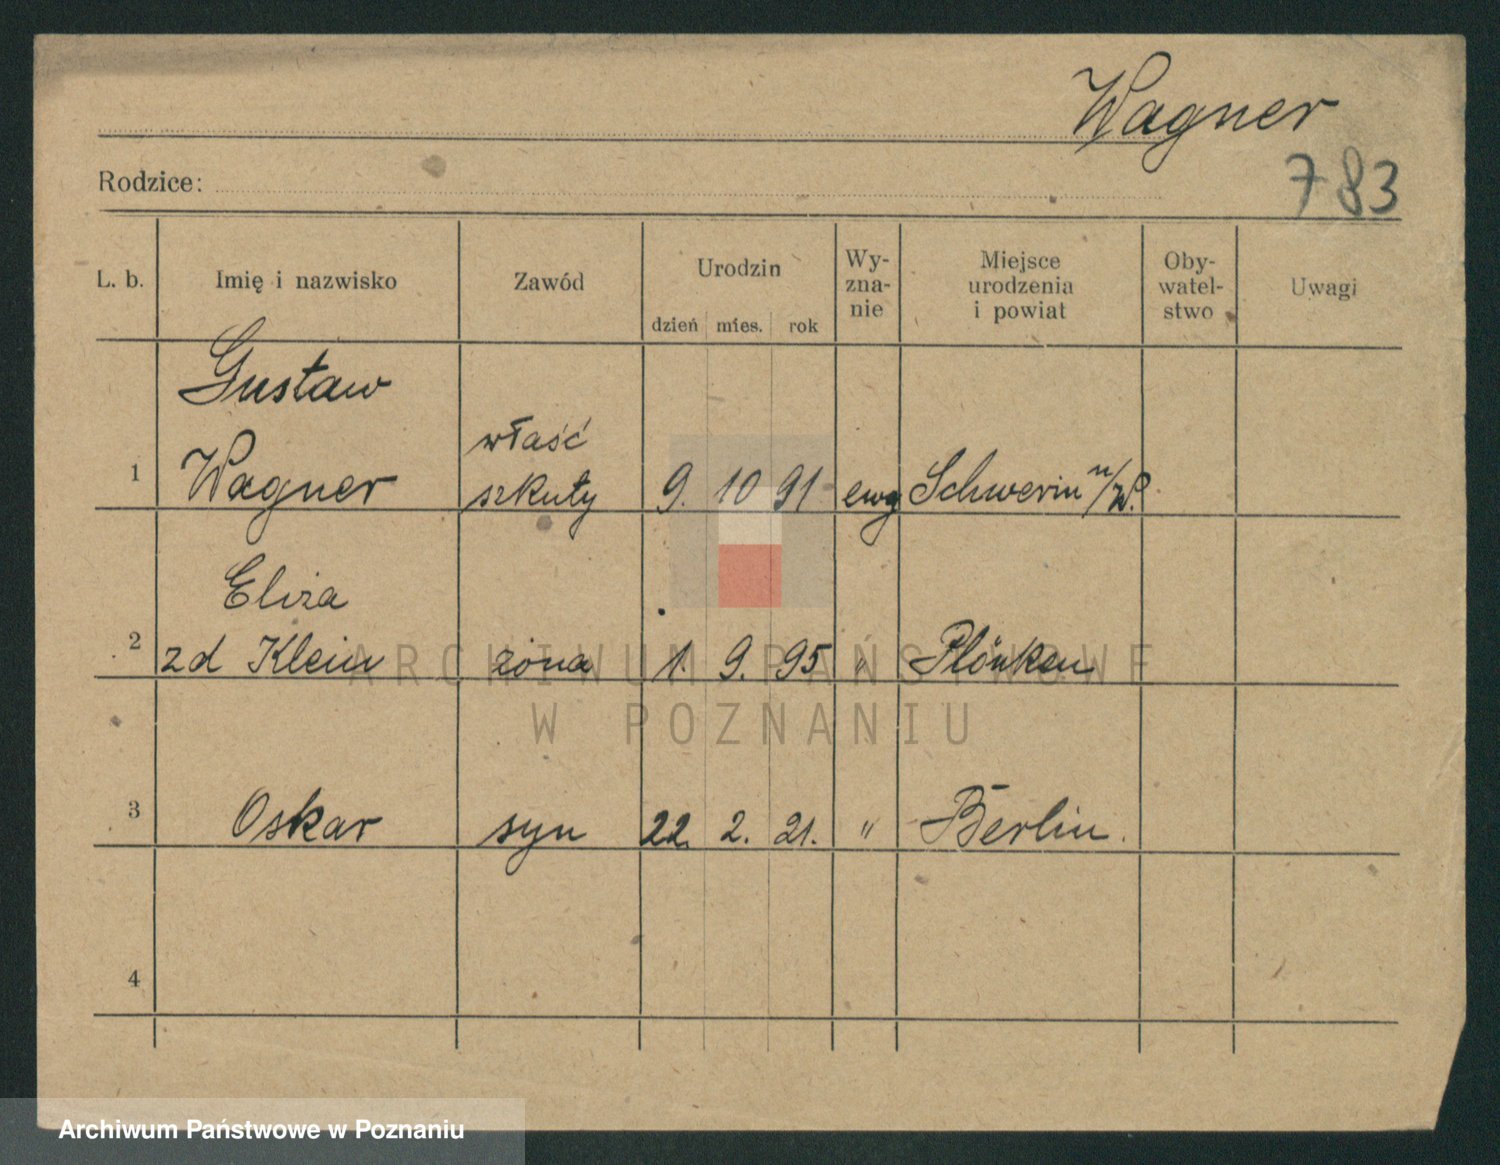 Wagner
Rodzice:
783
L. b. Imię i nazwisko Zawód Urodzin dzień mies. rok Wy-zna-nie Miejsce urodzenia i powiat Oby-watel-stwo Uwagi
Gustaw
właść
1 Wagner szkuty 9. 10 91 ewg Schwerin n/W.
Eliza
2 zd Klein żona 1. 9. 95 " Plönken
ARCHIWUM PAŃSTWOWE
W POZNANIU
3 Oskar syn 22. 2. 21. " Berlin.
4
Archiwum Państwowe w Poznaniu